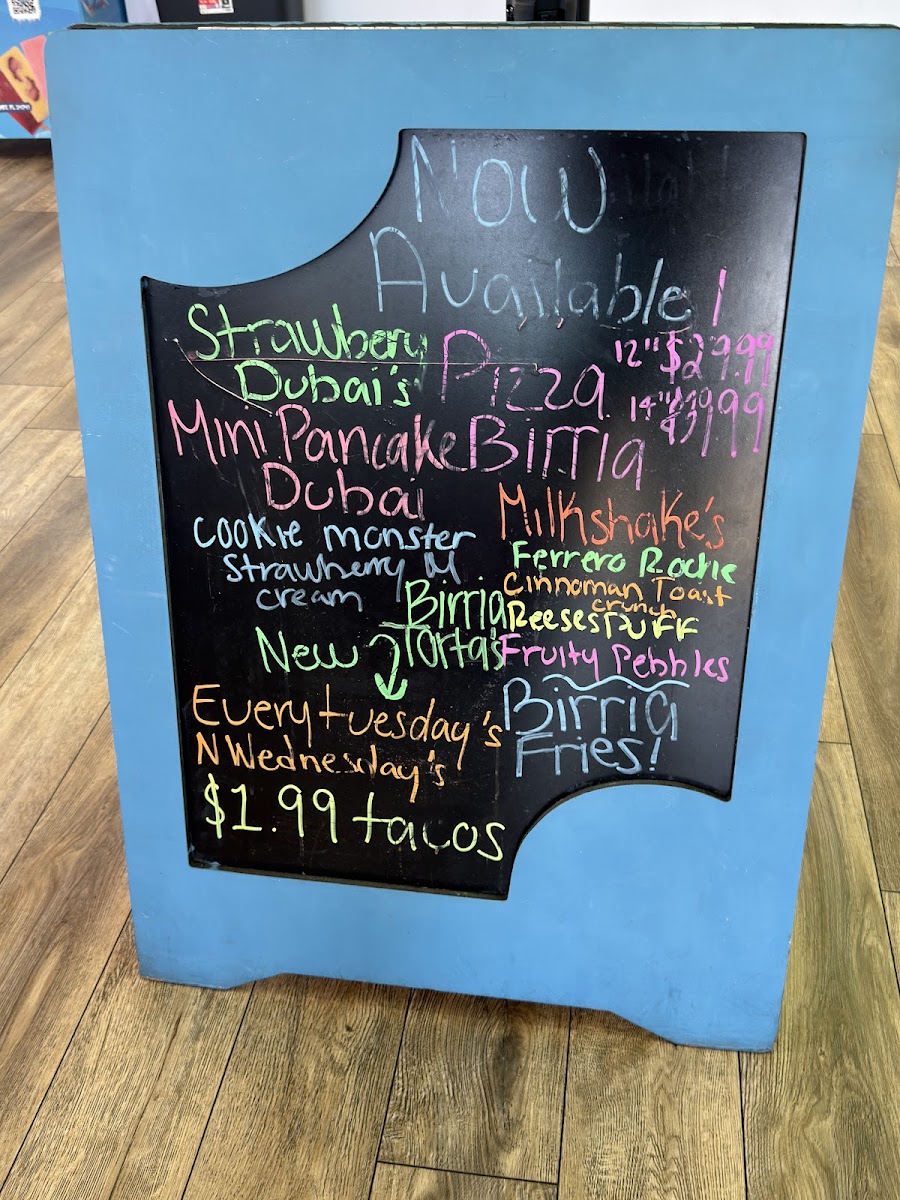 Now
Available!
Strawbery
Dubai's
Mini Pancake
Dubai
Cookie monster
Strawherry M
cream
Birria
Torta's
New
Every tuesday's
N Wednesday's
$1.99 tacos
Pizza 12" $29.99
14" $39.99
Birria
Milkshake's
Ferrero Rochie
Cinnoman Toast
crunch
Reeses Puff
Fruity Pebbles
Birria
Fries!